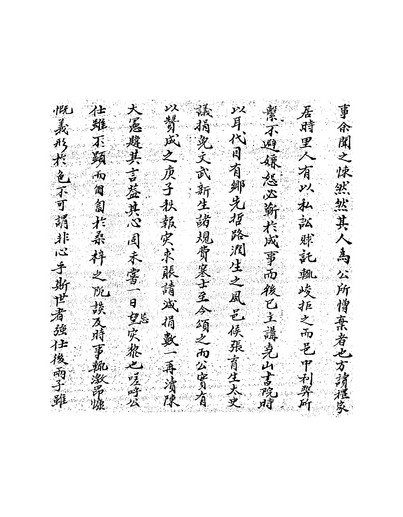 事余聞之悚然然其人為公所憎棄者也方讀禮家
居時里人有以私訟賕託輒峻拒之而邑中利弊所
繫不避嫌怨必蘄於成事而後已主講堯山書院時
以耳代目有鄉先哲路潤生之風邑侯張育生太史
議捐免文武新生諸規費寒士至今頌之而公實有
以贊成之庚子秋報災求賑請減捐數一再瀆陳
大憲韙其言蓋其心固未嘗一日忘災黎也嗟呼公
仕雖不顯而眷眷於桑梓之阨談及時事輒激昂慷
慨義形於色不可謂非心乎斯世者強仕後兩子雖